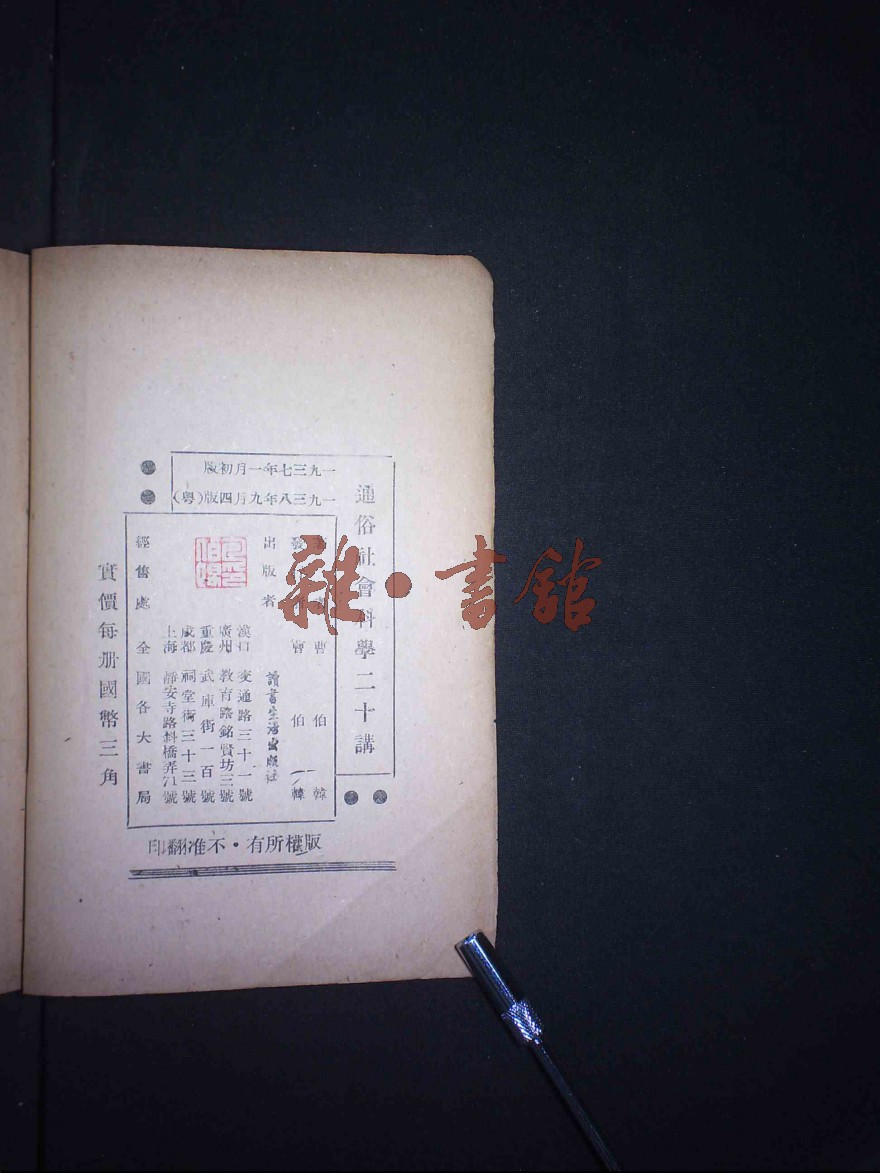 一九三七年一月初版
一九三八年九月四版(粤)
通俗社會科學二十講
曹伯韓
發 曹伯韓
出版者 讀書生活出版社
漢口 交通路三十一號
廣州 教育路銘賢坊三號
重慶 武庫街一百號
成都 祠堂街三十三號
上海 靜安寺路斜橋弄71號
經售處 全國各大書局
實價每册國幣三角
版權所有·不准翻印
雜·書館